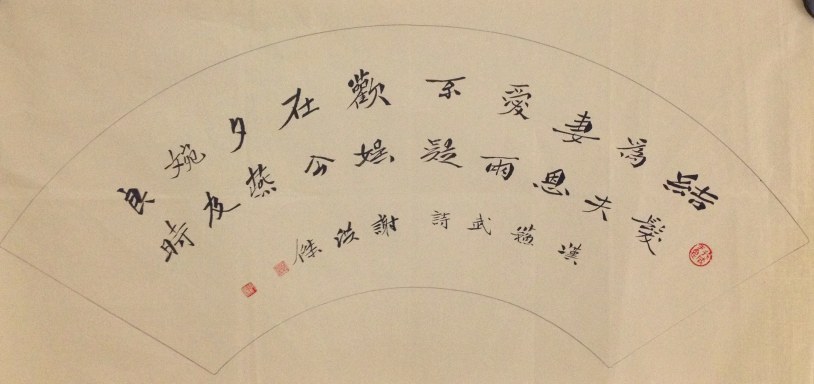 結髮
為夫
妻恩
愛兩
不疑
歡娛
在今
夕燕
婉及
良時
漢蘇武詩
謝傑